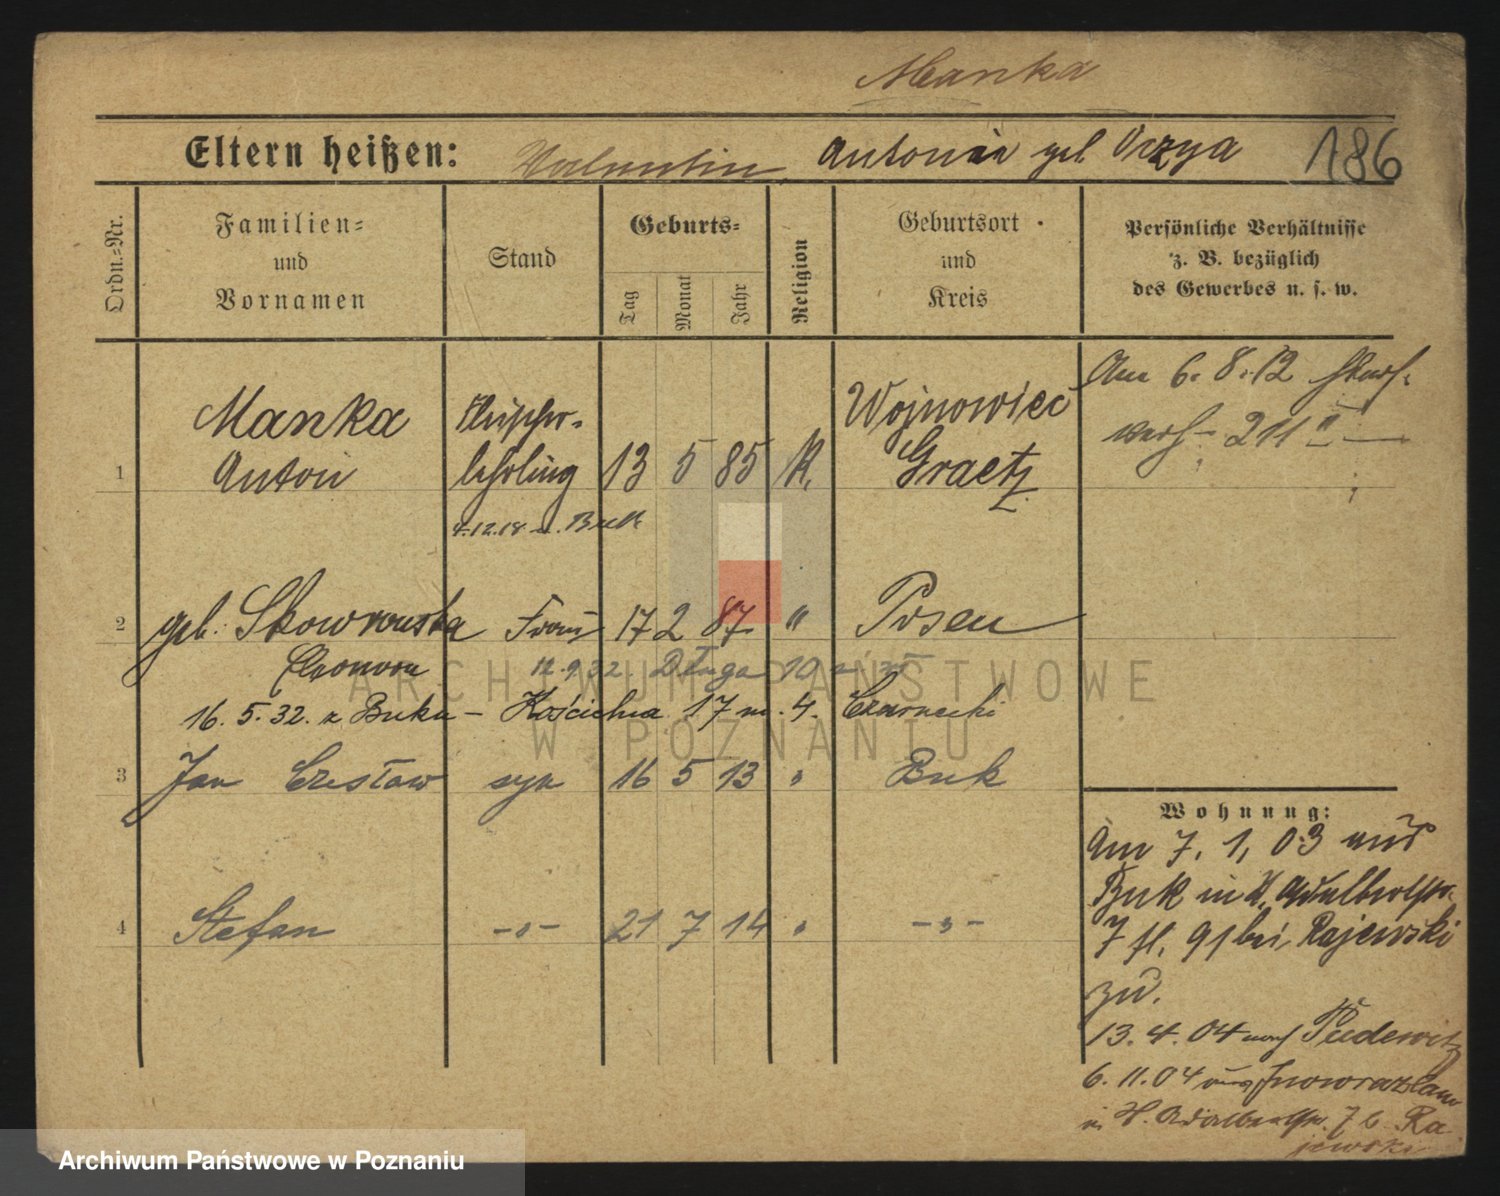 Manka
Eltern heißen: Valentin, Antonia geb Orzya 186
Ordn.-Nr.
Familien-
und
Vornamen
Stand
Geburts-
Tag
Monat
Jahr
Religion
Geburtsort
und
Kreis
Persönliche Verhältnisse
z. B. bezüglich
des Gewerbes u. s. w.
Am 6. 8. 12
211
1 Manka
Anton
Fleischer-
lehrling 13 5 85 K.
Wojnowiec
Graetz
4.12.18 Buk
2 geb. Skowronska Frau 17 2 87 " Posen
12.9.32. Długa 10
16. 5. 32. z Buku – Kościelna 17 m. 4. Czarnecki
3 Jan Czesław syn 16 5 13 " Buk
4 Stefan -"- 21 7 14 " -"-
Wohnung:
Am 7. 1. 03 aus
Buk in St. Adalbertstr.
7 bei Rajewski
zu.
13. 4. 04 nach Pudewitz
6. 11. 04 aus Inowrazlaw
in St. Adalbertstr. 7 b Ra
jewski
ARCHIWUM PAŃSTWOWE
W POZNANIU
Archiwum Państwowe w Poznaniu